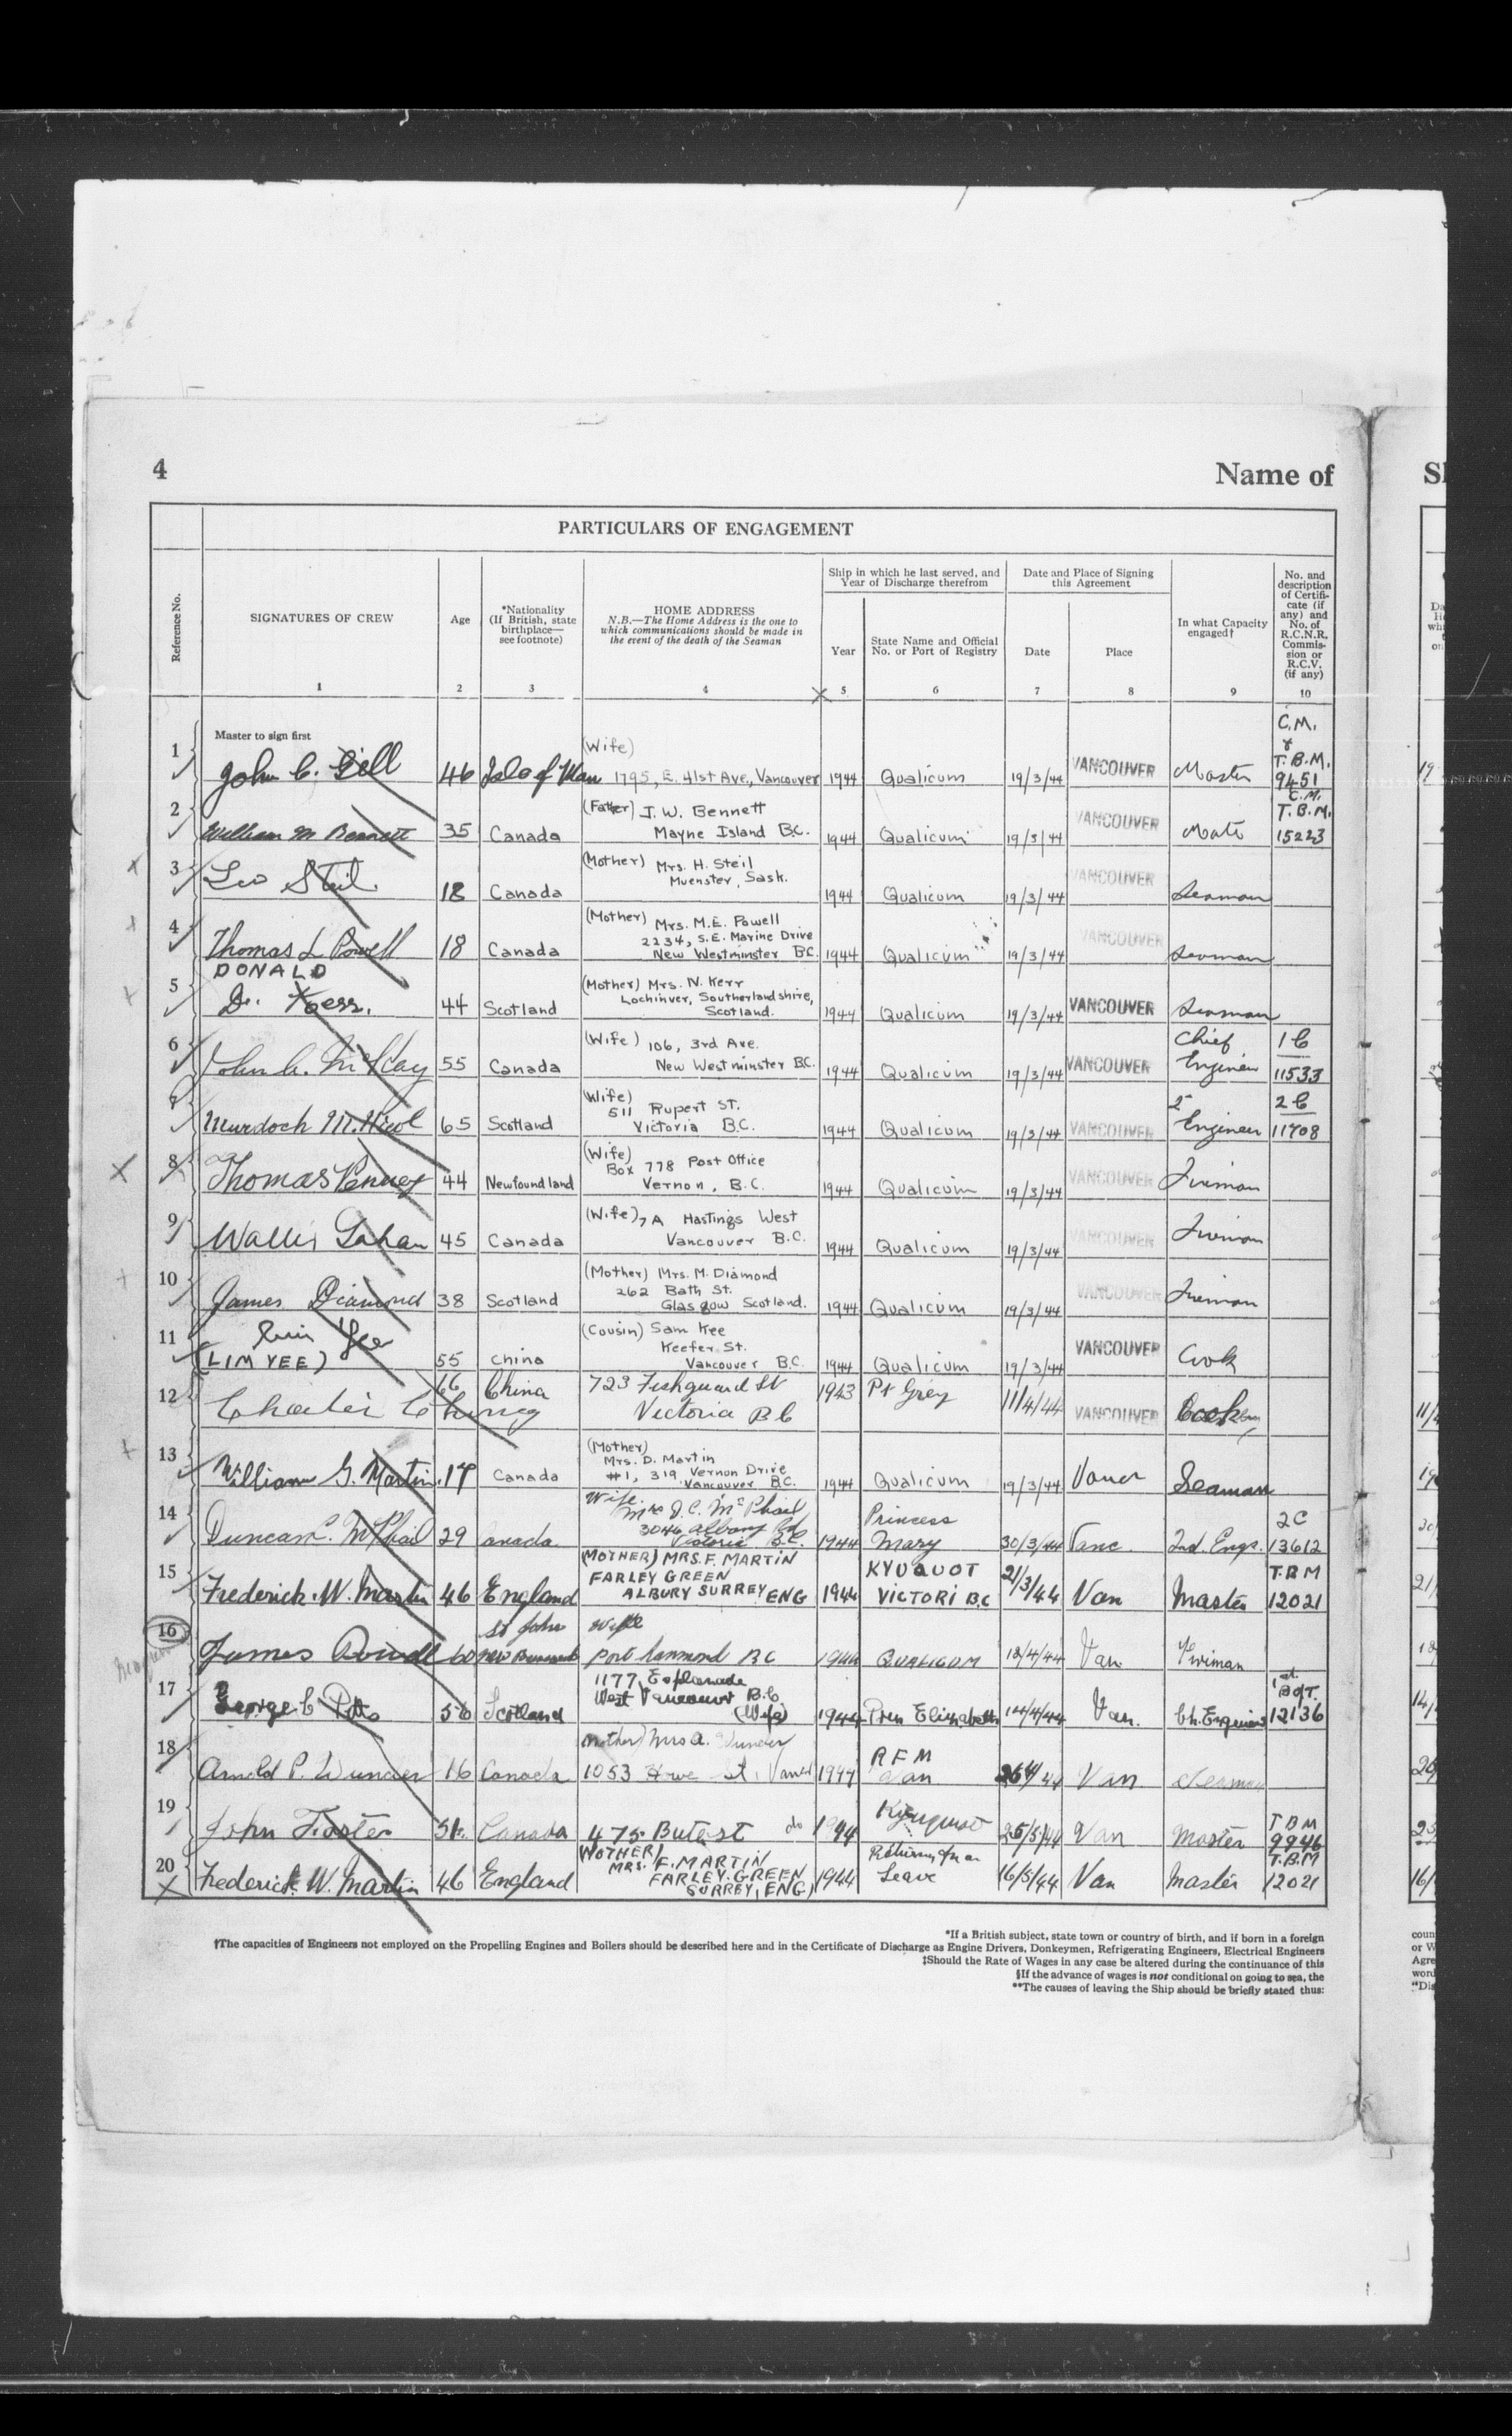 4
Name of
PARTICULARS OF ENGAGEMENT
Reference No.
SIGNATURES OF CREW
Age
*Nationality
(If British, state
birthplace—
see footnote)
HOME ADDRESS
N.B.—The Home Address is the one to
which communications should be made in
the event of the death of the Seaman
Ship in which he last served, and
Year of Discharge therefrom
Year
State Name and Official
No. or Port of Registry
Date and Place of Signing
this Agreement
Date
Place
In what Capacity
engaged†
No. and
description
of Certifi-
cate (if
any) and
No. of
R.C.N.R.
Commis-
sion or
R.C.V.
(if any)
1 2 3 4 5 6 7 8 9 10
Master to sign first
C.M.
&
T.B.M.
(Wife)
1 John C. Gill 46 Isle of Man 1795, E. 41st Ave., Vancouver 1944 Qualicum 19/3/44 VANCOUVER Master 9451
(Father) J. W. Bennett C.M.
T.B.M.
2 William M Bennett 35 Canada Mayne Island B.C. 1944 Qualicum 19/3/44 VANCOUVER Mate 15223
(Mother) Mrs. H. Steil
3 Leo Steil 18 Canada Muenster, Sask. 1944 Qualicum 19/3/44 VANCOUVER Seaman
(Mother) Mrs. M.E. Powell
2234, S.E. Marine Drive
4 Thomas L Powell 18 Canada New Westminster B.C. 1944 Qualicum 19/3/44 VANCOUVER Seaman
DONALD
(Mother) Mrs. N. Kerr
Lochinver, Southerlandshire,
5 D. Kerr. 44 Scotland Scotland. 1944 Qualicum 19/3/44 VANCOUVER Seaman
(Wife) 106, 3rd Ave. Chief 1 C
6 John McKay 55 Canada New Westminster B.C. 1944 Qualicum 19/3/44 VANCOUVER Engineer 11533
(Wife)
511 Rupert St. 2 2 C
7 Murdoch 65 Scotland Victoria B.C. 1944 Qualicum 19/3/44 VANCOUVER Engineer 11708
(Wife)
Box 778 Post Office
8 Thomas Penney 44 Newfoundland Vernon, B.C. 1944 Qualicum 19/3/44 VANCOUVER Fireman
(Wife) 7A Hastings West
9 Wallis 45 Canada Vancouver B.C. 1944 Qualicum 19/3/44 VANCOUVER Fireman
(Mother) Mrs. M. Diamond
262 Bath St.
10 James Diamond 38 Scotland Glasgow Scotland. 1944 Qualicum 19/3/44 VANCOUVER Fireman
Yee
(Cousin) Sam Kee
Keefer St.
11 (LIM YEE) 55 China Vancouver B.C. 1944 Qualicum 19/3/44 VANCOUVER Cook
66 China 723 Fishguard St 1943 Pt Grey 11/4/44
12 Charlie Chung Victoria B C VANCOUVER Cook
(Mother)
Mrs. D. Martin
#1, 319 Vernon Drive
13 William G. Martin 17 Canada Vancouver B.C. 1944 Qualicum 19/3/44 Vancr Seaman
Wife.
Mrs D. C. McPhail Princess 2C
3046 Albany Rd
14 Duncan C. McPhail 29 Canada Victoria B.C. 1944 Mary 30/3/44 Vanc. 2nd. Engr. 13612
(MOTHER) MRS. F. MARTIN KYUQUOT T.B.M
FARLEY GREEN
15 Frederick. W. Martin 46 England ALBURY SURREY ENG 1944 VICTORI B.C 21/3/44 Van Master 12021
St John Wife
16 James 60 New Brunswick Port Hammond B C 1944 QUALICUM 12/4/44 Van Fireman
1177, Esplanade 1st.
West Vancouver B.C BOT.
17 George C Potts 56 Scotland (Wife) 1944 Prin Elizabeth 14/4/44 Van. Ch. Engineer 12136
(Mother) Mrs A. Wunder R F M
18 Arnold P. Wunder 16 Canada 1053 Howe St. Vancr 1944 Van 26/4/44 Van Seaman
19 John Foster 51 Canada 475 Bute St do 1944 Kyuquot 25/5/44 Van Master TBM
9946
MOTHER)
MRS. F. MARTIN Returning from T.B.M
FARLEY. GREEN
20 Frederick W. Martin 46 England SURREY, ENG) 1944 Leave 16/5/44 Van Master 12021
*If a British subject, state town or country of birth, and if born in a foreign
†The capacities of Engineers not employed on the Propelling Engines and Boilers should be described here and in the Certificate of Discharge as Engine Drivers, Donkeymen, Refrigerating Engineers, Electrical Engineers
‡Should the Rate of Wages in any case be altered during the continuance of this
§If the advance of wages is not conditional on going to sea, the
**The causes of leaving the Ship should be briefly stated thus: